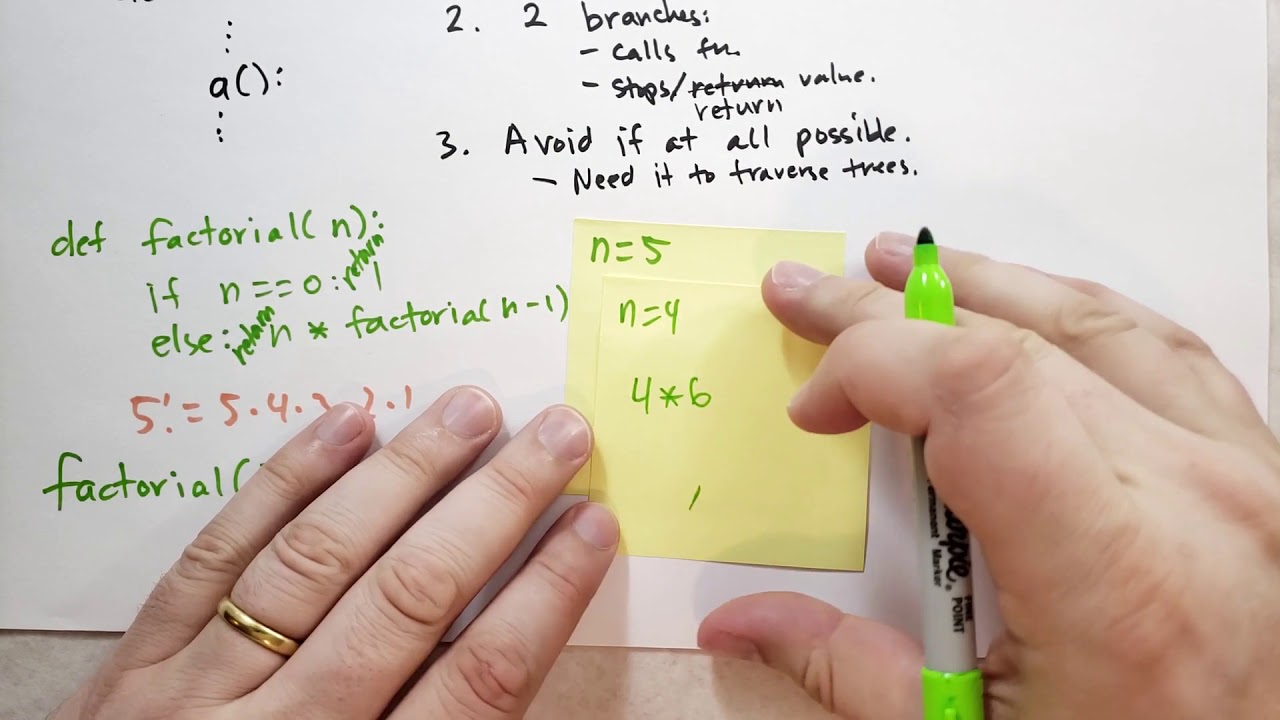 ⋮
a():
⋮
2. 2 branches:
- calls fn.
- stops/retrurn value.
return
3. Avoid if at all possible.
- Need it to traverse trees.
def factorial(n):
if n==0: return 1
else: return n * factorial(n-1)
5! = 5·4·
2·1
factorial(
n=5
n=4
4*6
Permanent Marker
FINE POINT